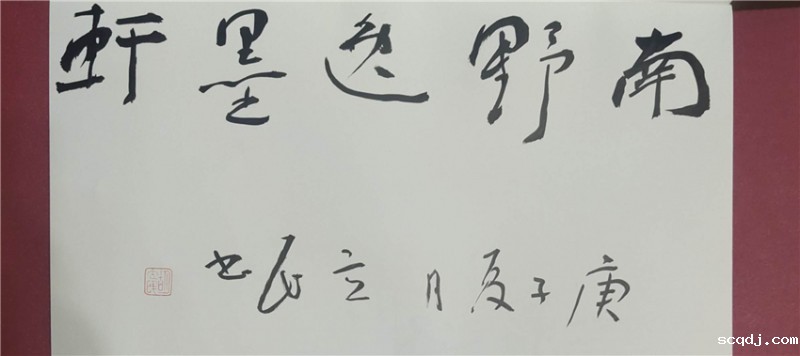 南野逸墨軒
庚子夏月立民书
scqdj.com